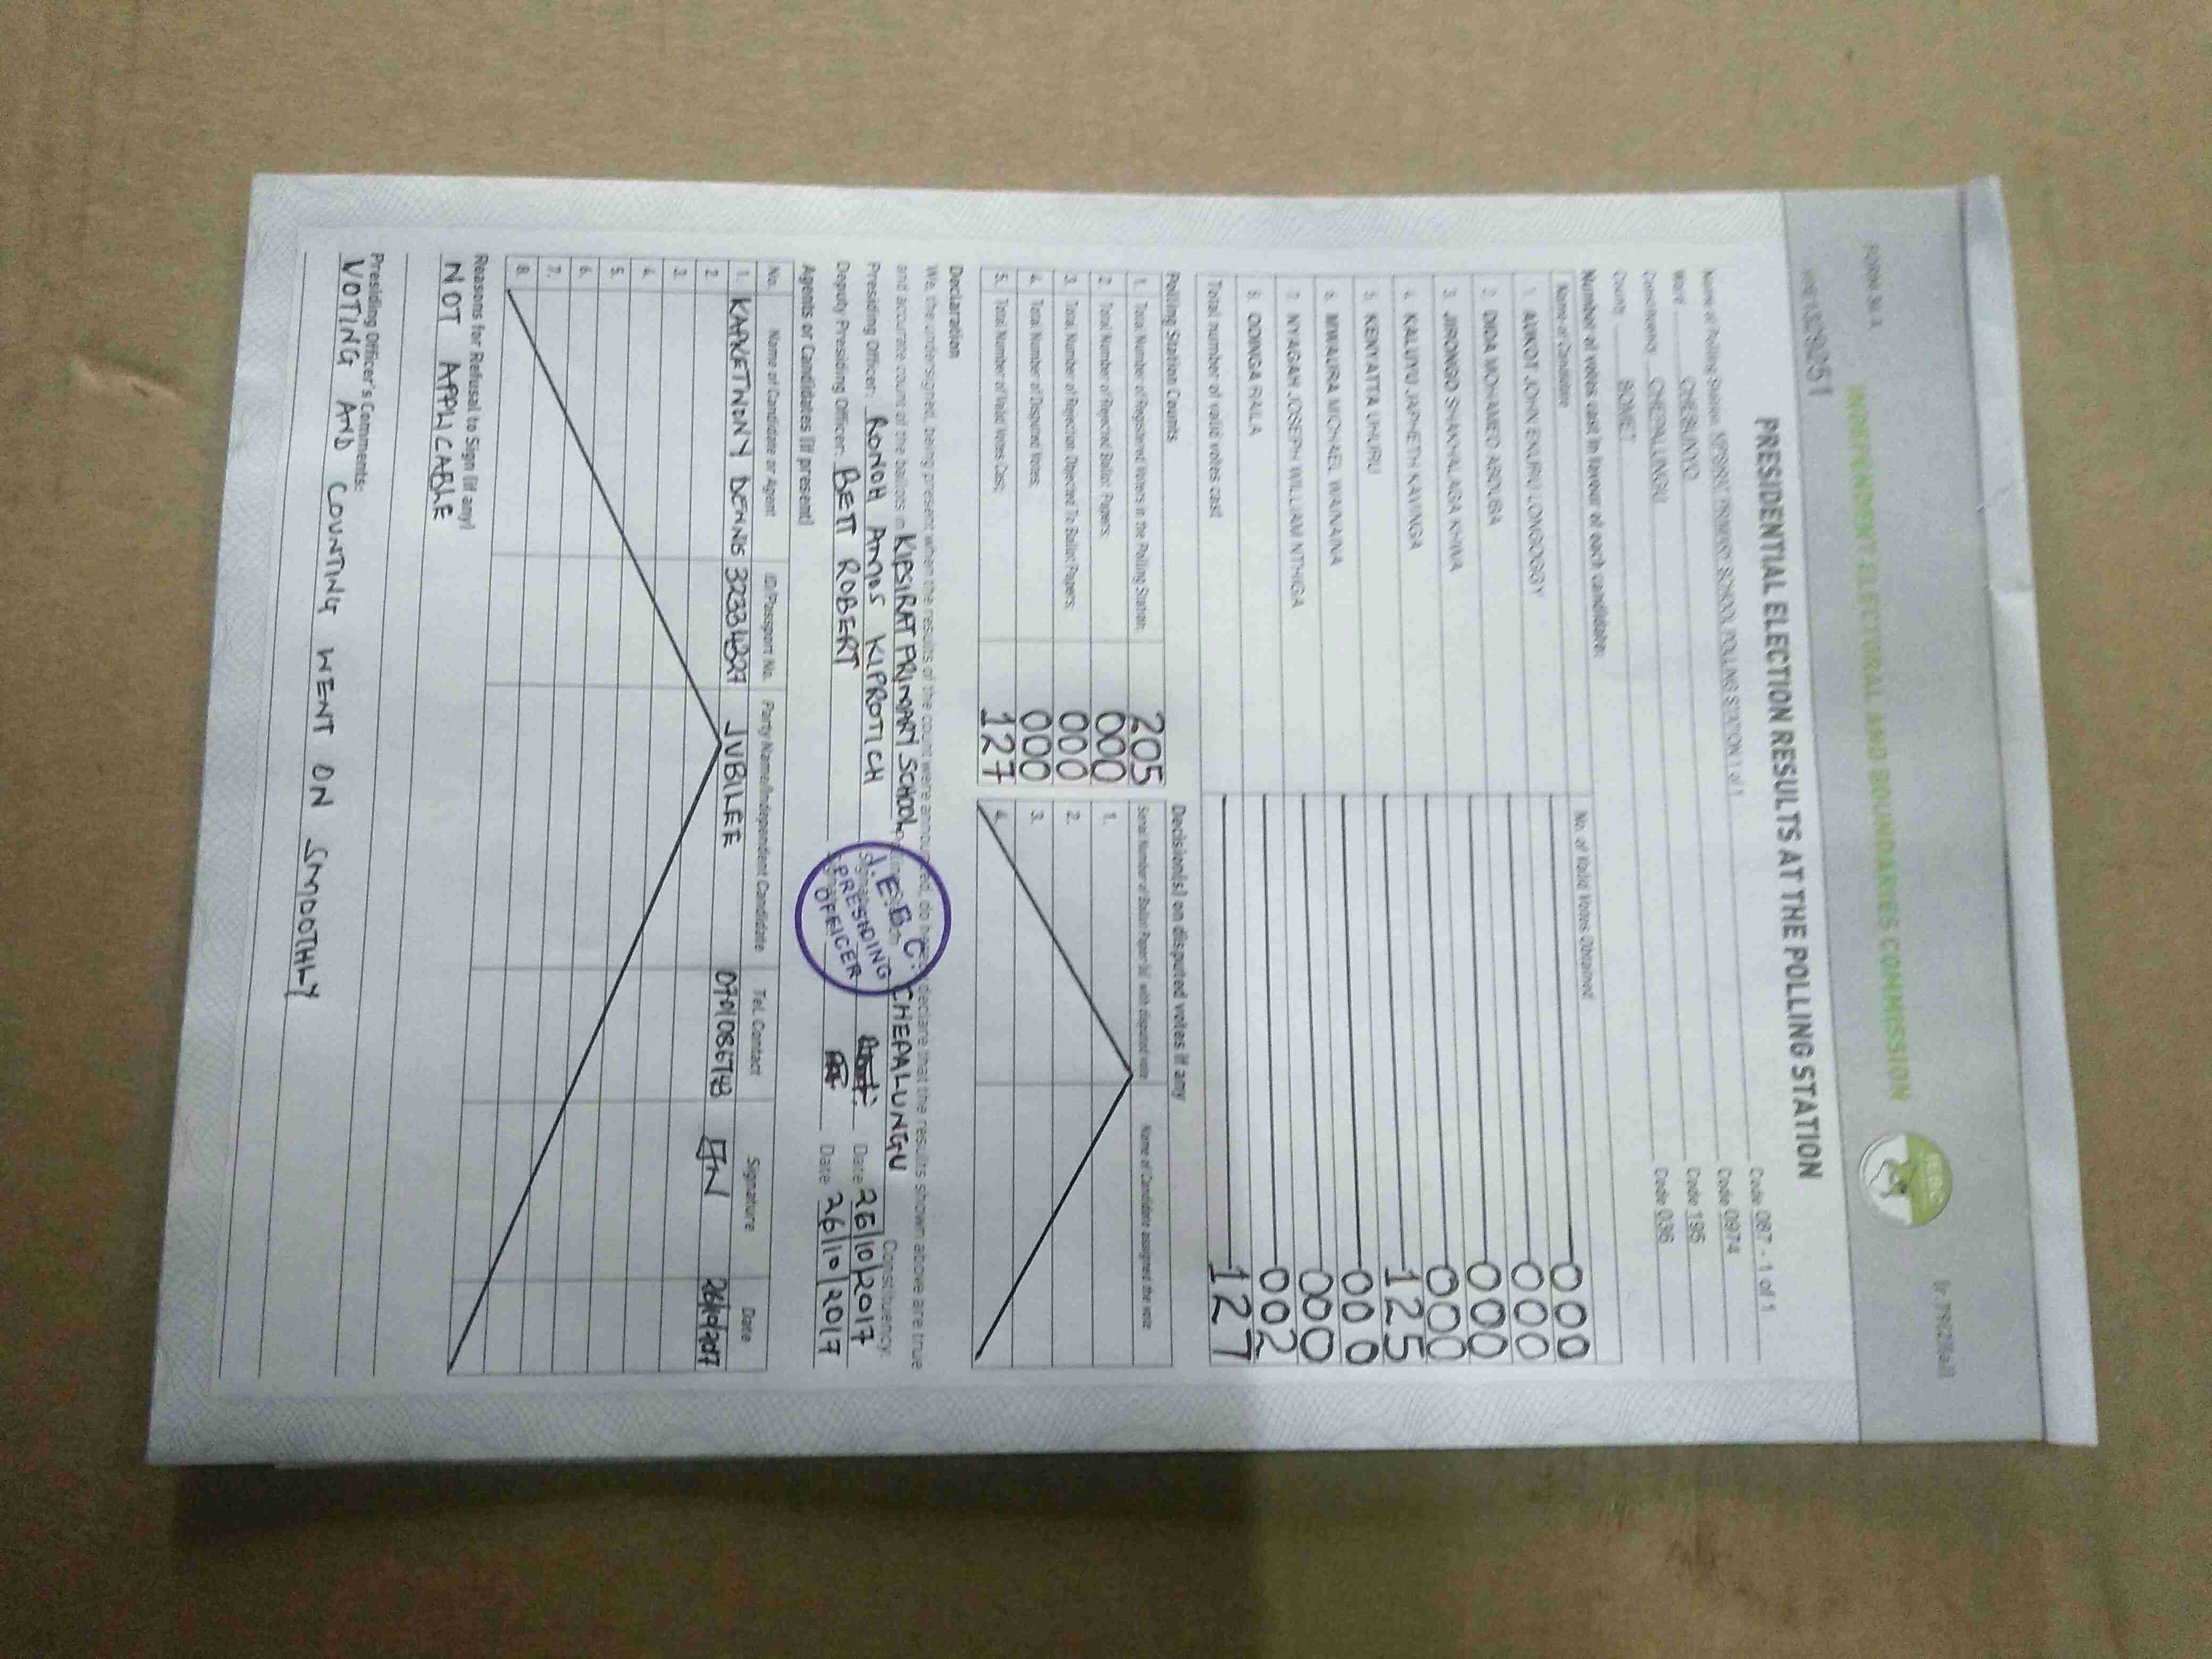 FORM 34 A
INDEPENDENT ELECTORAL AND BOUNDARIES COMMISSION
IEBC
PRESIDENTIAL ELECTION RESULTS AT THE POLLING STATION
Name of Polling Station KIPSIRAT PRIMARY SCHOOL POLLING STATION 1 of 1 Code 087 - 1 of 1
Ward CHEBUNYO Code 0974
Constituency CHEPALUNGU Code 195
County BOMET Code 036
Number of votes cast in favour of each candidate:
Name of Candidate No. of Valid Votes Obtained
1. AUKOT JOHN EKURU LONGOGGY 000
2. DIDA MOHAMED ABDUBA 000
3. JIRONGO SHAKHALAGA KHWA 000
4. KALUYU JAPHETH KAVINGA 000
5. KENYATTA UHURU 125
6. MWAURA MICHAEL WAINAINA 000
7. NYAGAH JOSEPH WILLIAM NTHIGA 000
8. ODINGA RAILA 002
Total number of valid votes cast 127
Polling Station Counts Decision(s) on disputed votes if any
1. Total Number of Registered Voters in the Polling Station: 205 Serial Number of Ballot Paper(s) with disputed vote Name of Candidate assigned the vote
2. Total Number of Rejected Ballot Papers: 000 1.
3. Total Number of Rejection Objected To Ballot Papers: 000 2.
4. Total Number of Disputed Votes: 000 3.
5. Total Number of Valid Votes Cast: 127 4.
Declaration
We, the undersigned, being present when the results of the count were announced, do hereby declare that the results shown above are true
and accurate count of the ballots in KIPSIRAT PRIMARY SCHOOL CHEPALUNGU Constituency.
Presiding Officer: RONOH AMOS KIPROTICH Date 26/10/2017
Deputy Presiding Officer: BETT ROBERT Date 26/10/2017
I.E.B.C.
PRESIDING
OFFICER
Agents or Candidates (if present)
No. Name of Candidate or Agent ID/Passport No. Party Name/Independent Candidate Tel. Contact Signature Date
1. DENNIS 32334327 JUBILEE 26/10/2017
2.
3.
4.
5.
6.
7.
8.
Reasons for Refusal to Sign (if any)
NOT APPLICABLE
Presiding Officer's Comments:
VOTING AND COUNTING WENT ON SMOOTHLY